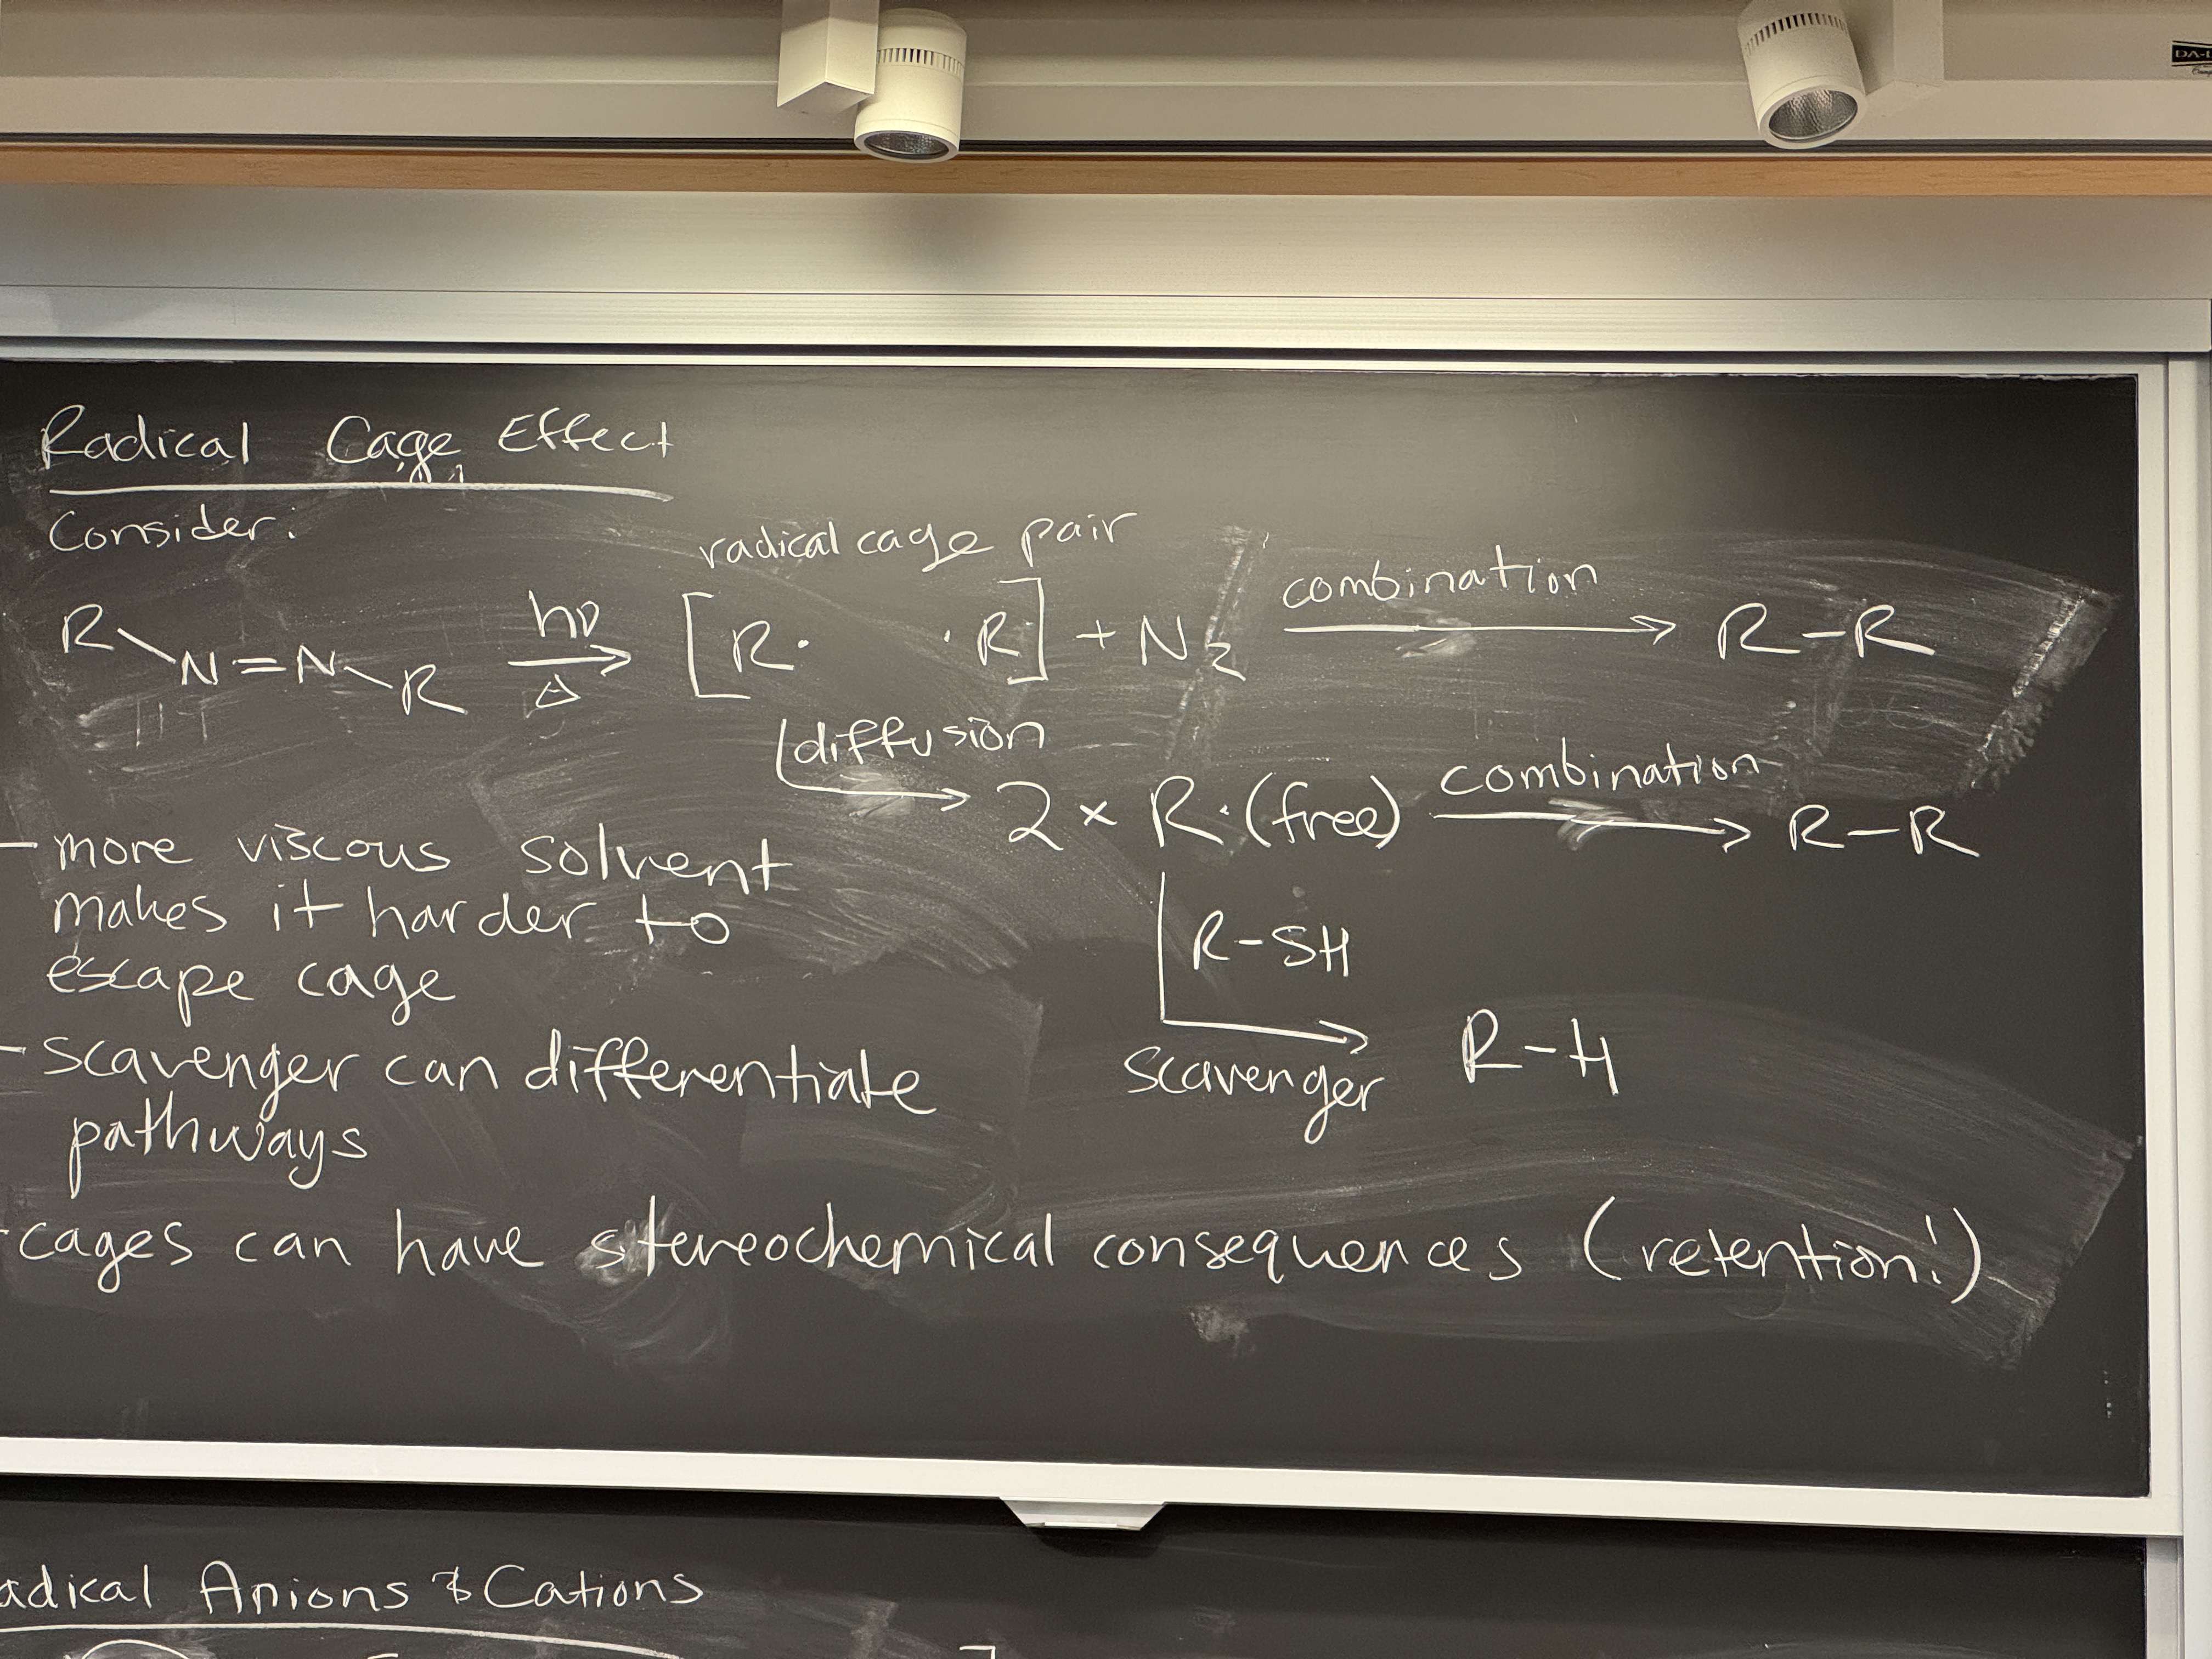 DA-L
Radical Cage Effect
Consider:
radical cage pair
R\N=N\R hν/Δ → [R· ·R] + N₂ combination → R-R
diffusion → 2 × R· (free) combination → R-R
R-SH
scavenger → R-H
- more viscous solvent
makes it harder to
escape cage
- scavenger can differentiate
pathways
- cages can have stereochemical consequences (retention!)
adical Anions & Cations